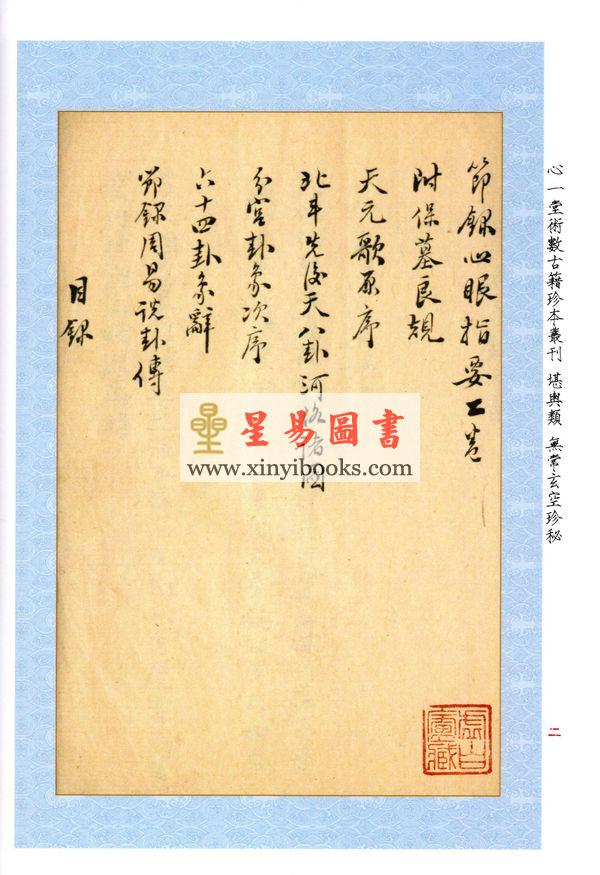 心一堂術數古籍珍本叢刊 堪輿類 無常玄空珍秘
二
節錄心眼指要工卷
附保墓良規
天元歌原序
北斗先後天八卦河洛諸圖
分宮卦象次序
六十四卦象辭
節錄周易說卦傳
目錄
星易圖書
www.xinyibooks.com
虛白廬藏